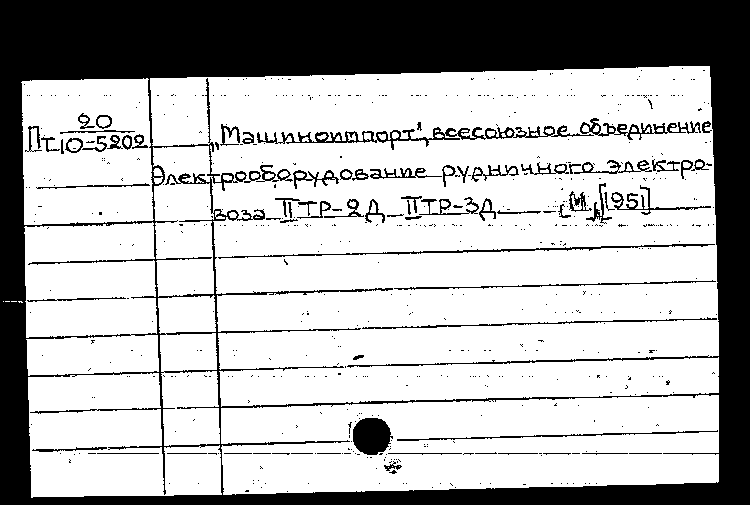 20
Пт.10-5202
„Машиноимпорт“, всесоюзное объединение
Электрооборудование рудничного электро-
воза II ТР-2Д II ТР-3Д [М., 1951]